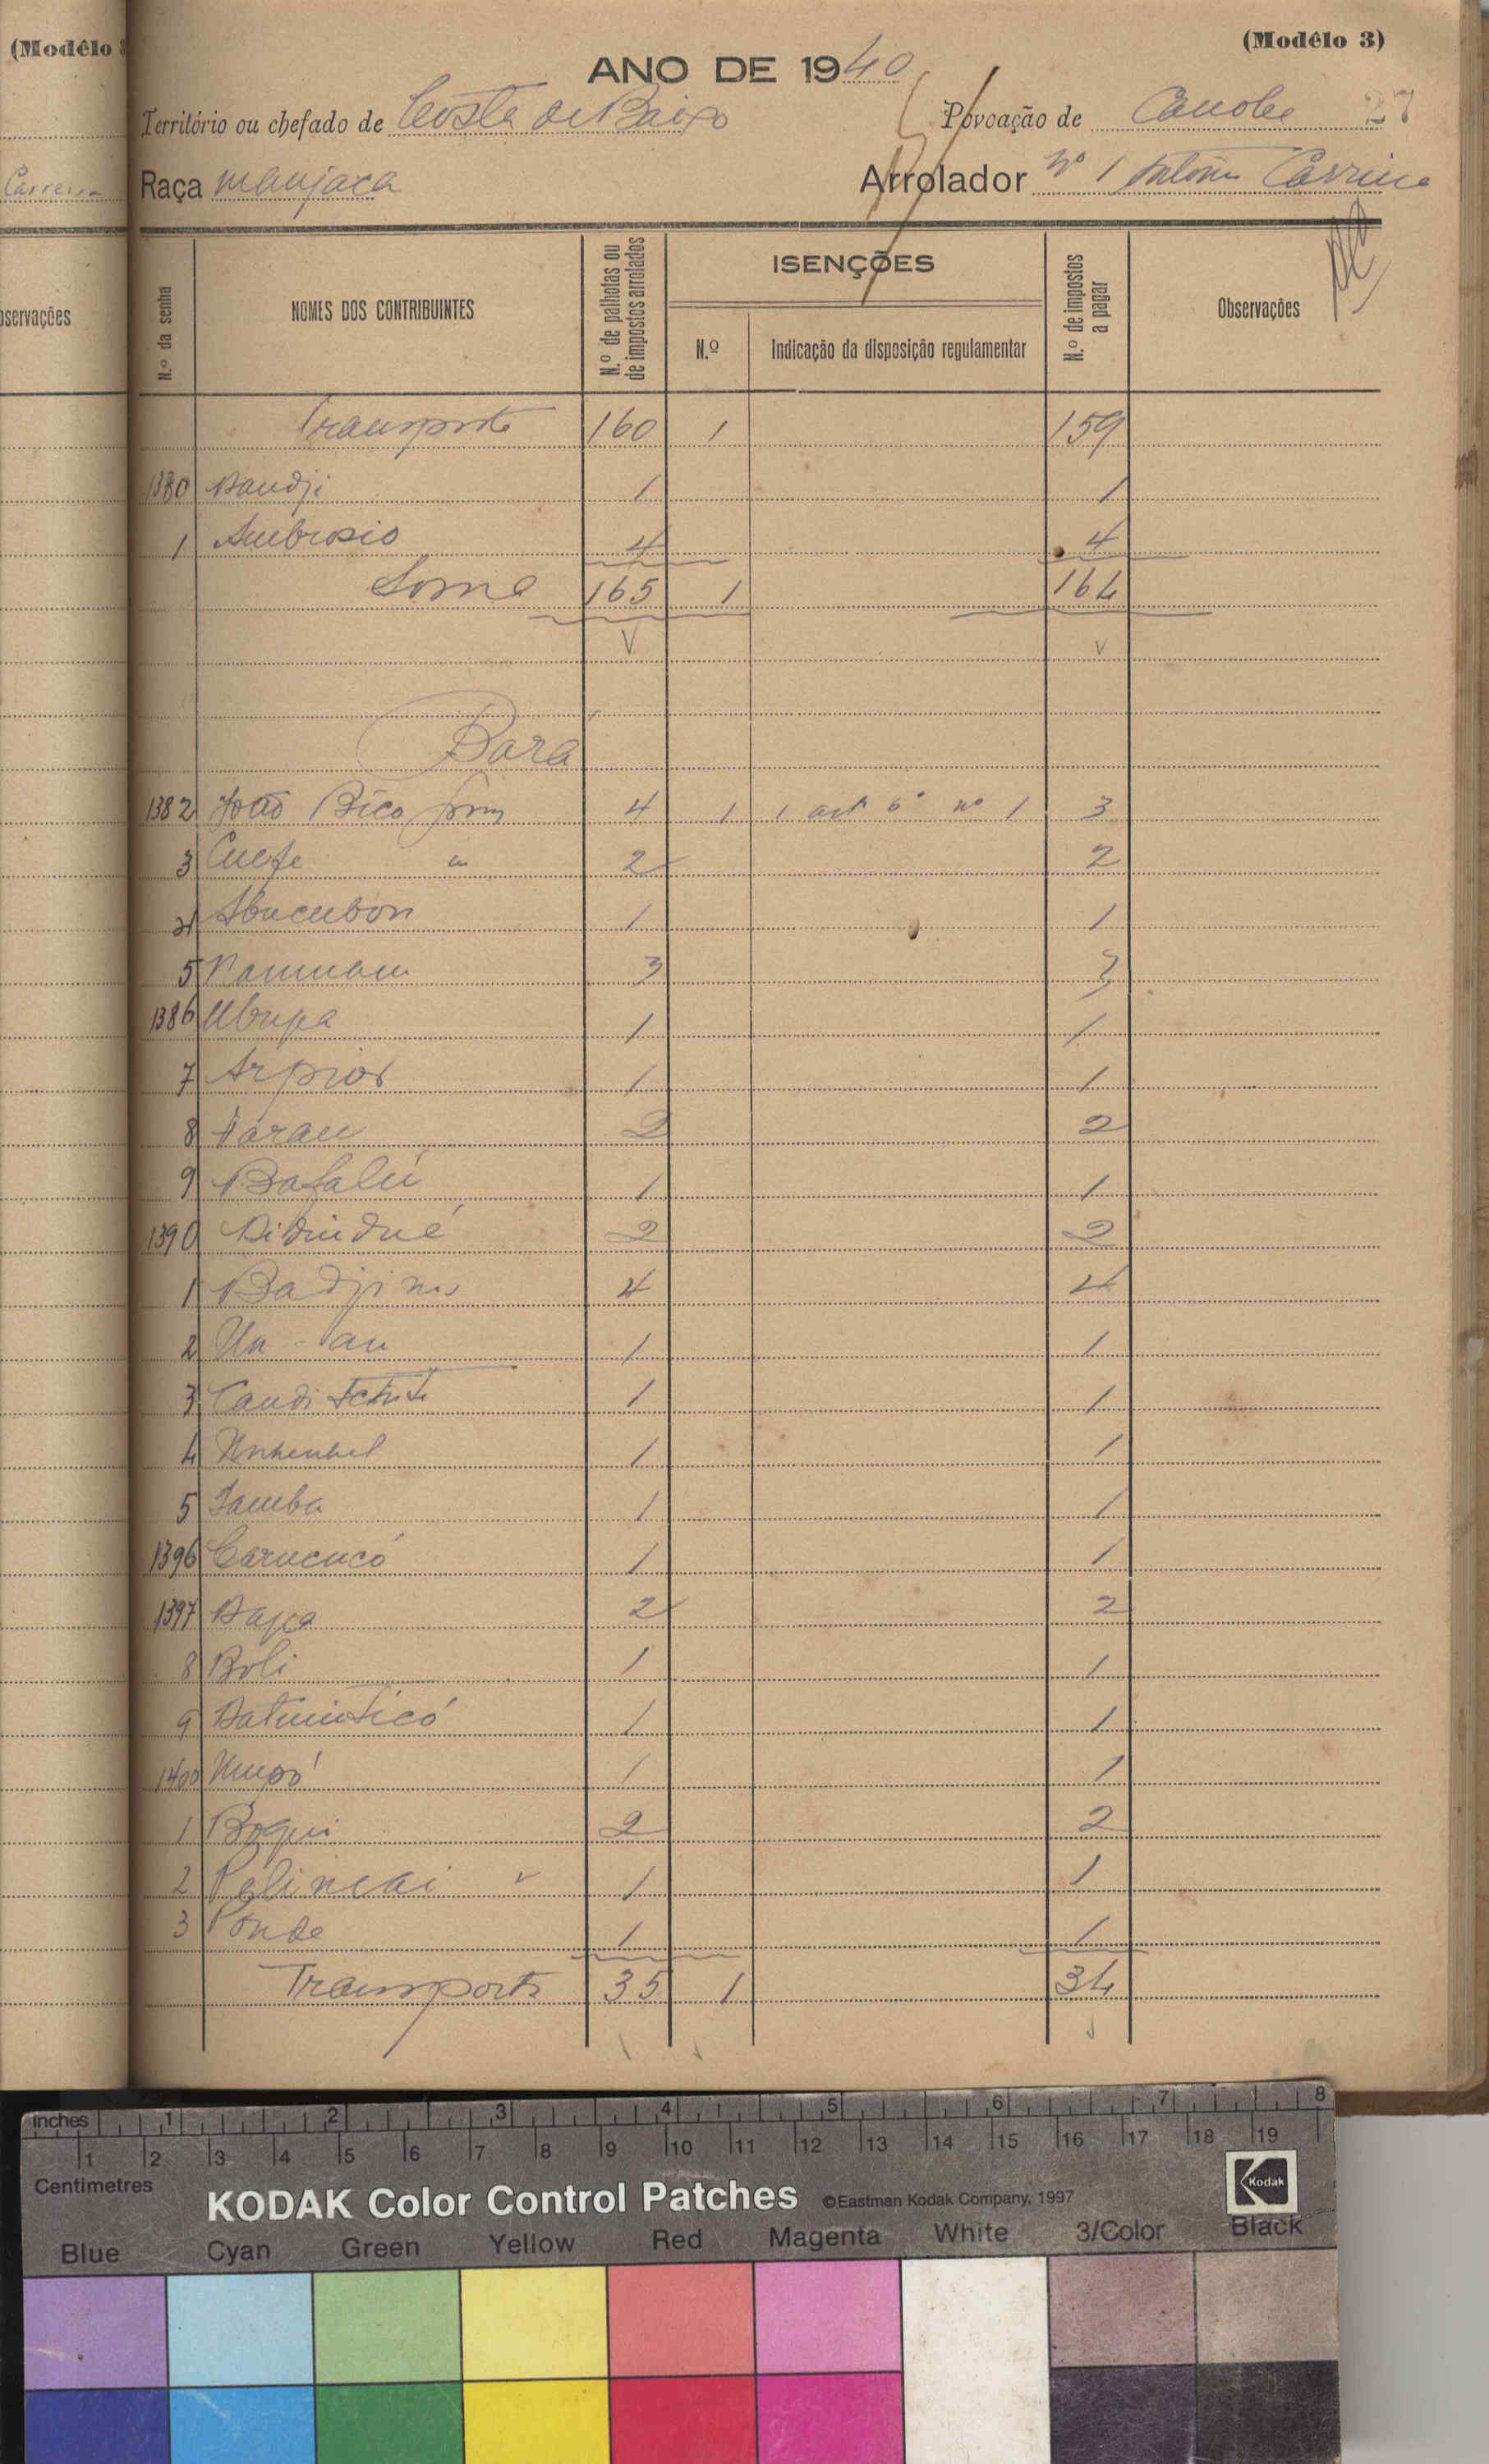 (Modêlo 3
Carreira
bservações
(Modêlo 3)
ANO DE 1940
27
Território ou chefado de Costa de Baixo Povoação de Canobe
Raça manjaca Arrolador Nº 1 Antonio Carreira
N.º da senha NOMES DOS CONTRIBUINTES N.º de palhotas ou de impostos arrolados ISENÇÕES N.º Indicação da disposição regulamentar N.º de impostos a pagar Observações
Transporte 160 1 159
1380 Daudji 1 1
1 Ambrosio 4 4
Soma 165 1 164
Bara
1382 João Bico 4 1 1 artº 6º nº 1 3
3 Cuefe " 2 2
4 Abucubon 1 1
5 3 3
1386 Ubupa 1 1
7 Arpior 1 1
8 Farau 2 2
9 Bafalú 1 1
1390 2 2
1 4 4
2 1 1
3 1 1
4 1 1
5 Samba 1 1
1396 Carucucó 1 1
1397 Dapa 2 2
8 Boli 1 1
9 1 1
1400 1 1
1 Boqui 2 2
2 Pelincai 1 1
3 Ponde 1 1
Transporte 35 1 34
inches 1 2 3 4 5 6 7 8
1 2 3 4 5 6 7 8 9 10 11 12 13 14 15 16 17 18 19
Centimetres
KODAK Color Control Patches ©Eastman Kodak Company, 1997 Kodak
Blue Cyan Green Yellow Red Magenta White 3/Color Black